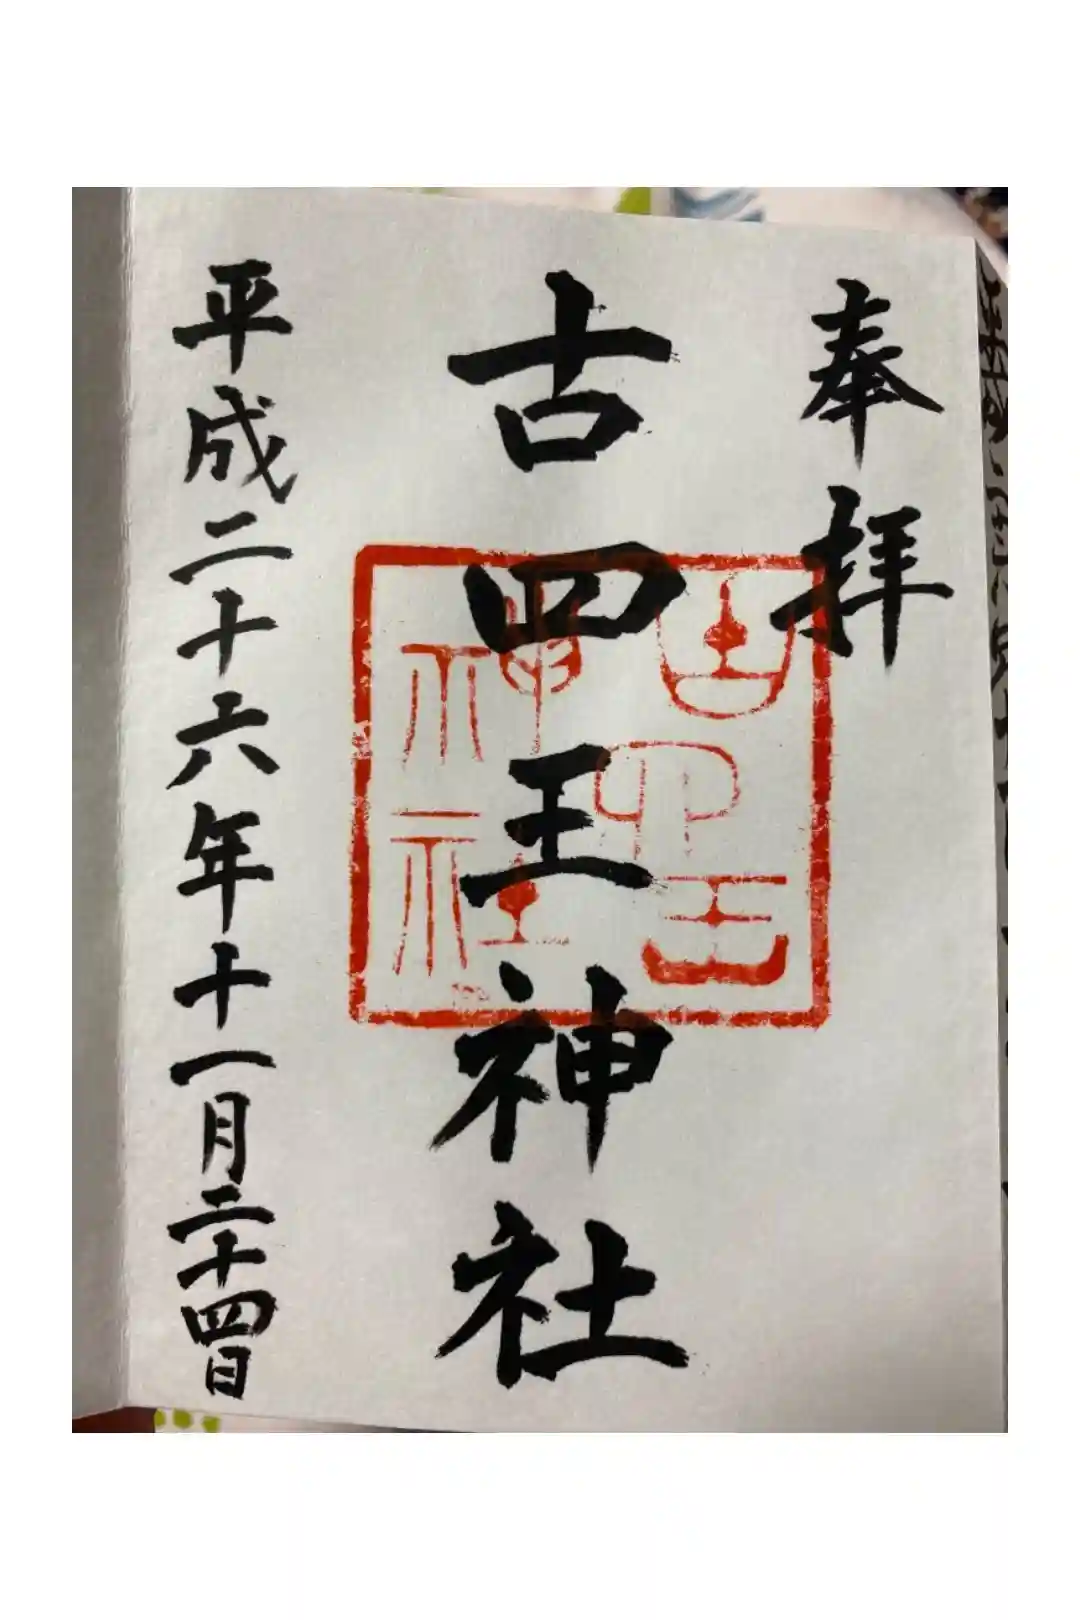 奉拝
古四王神社
古四王
神社
平成二十六年十一月二十四日